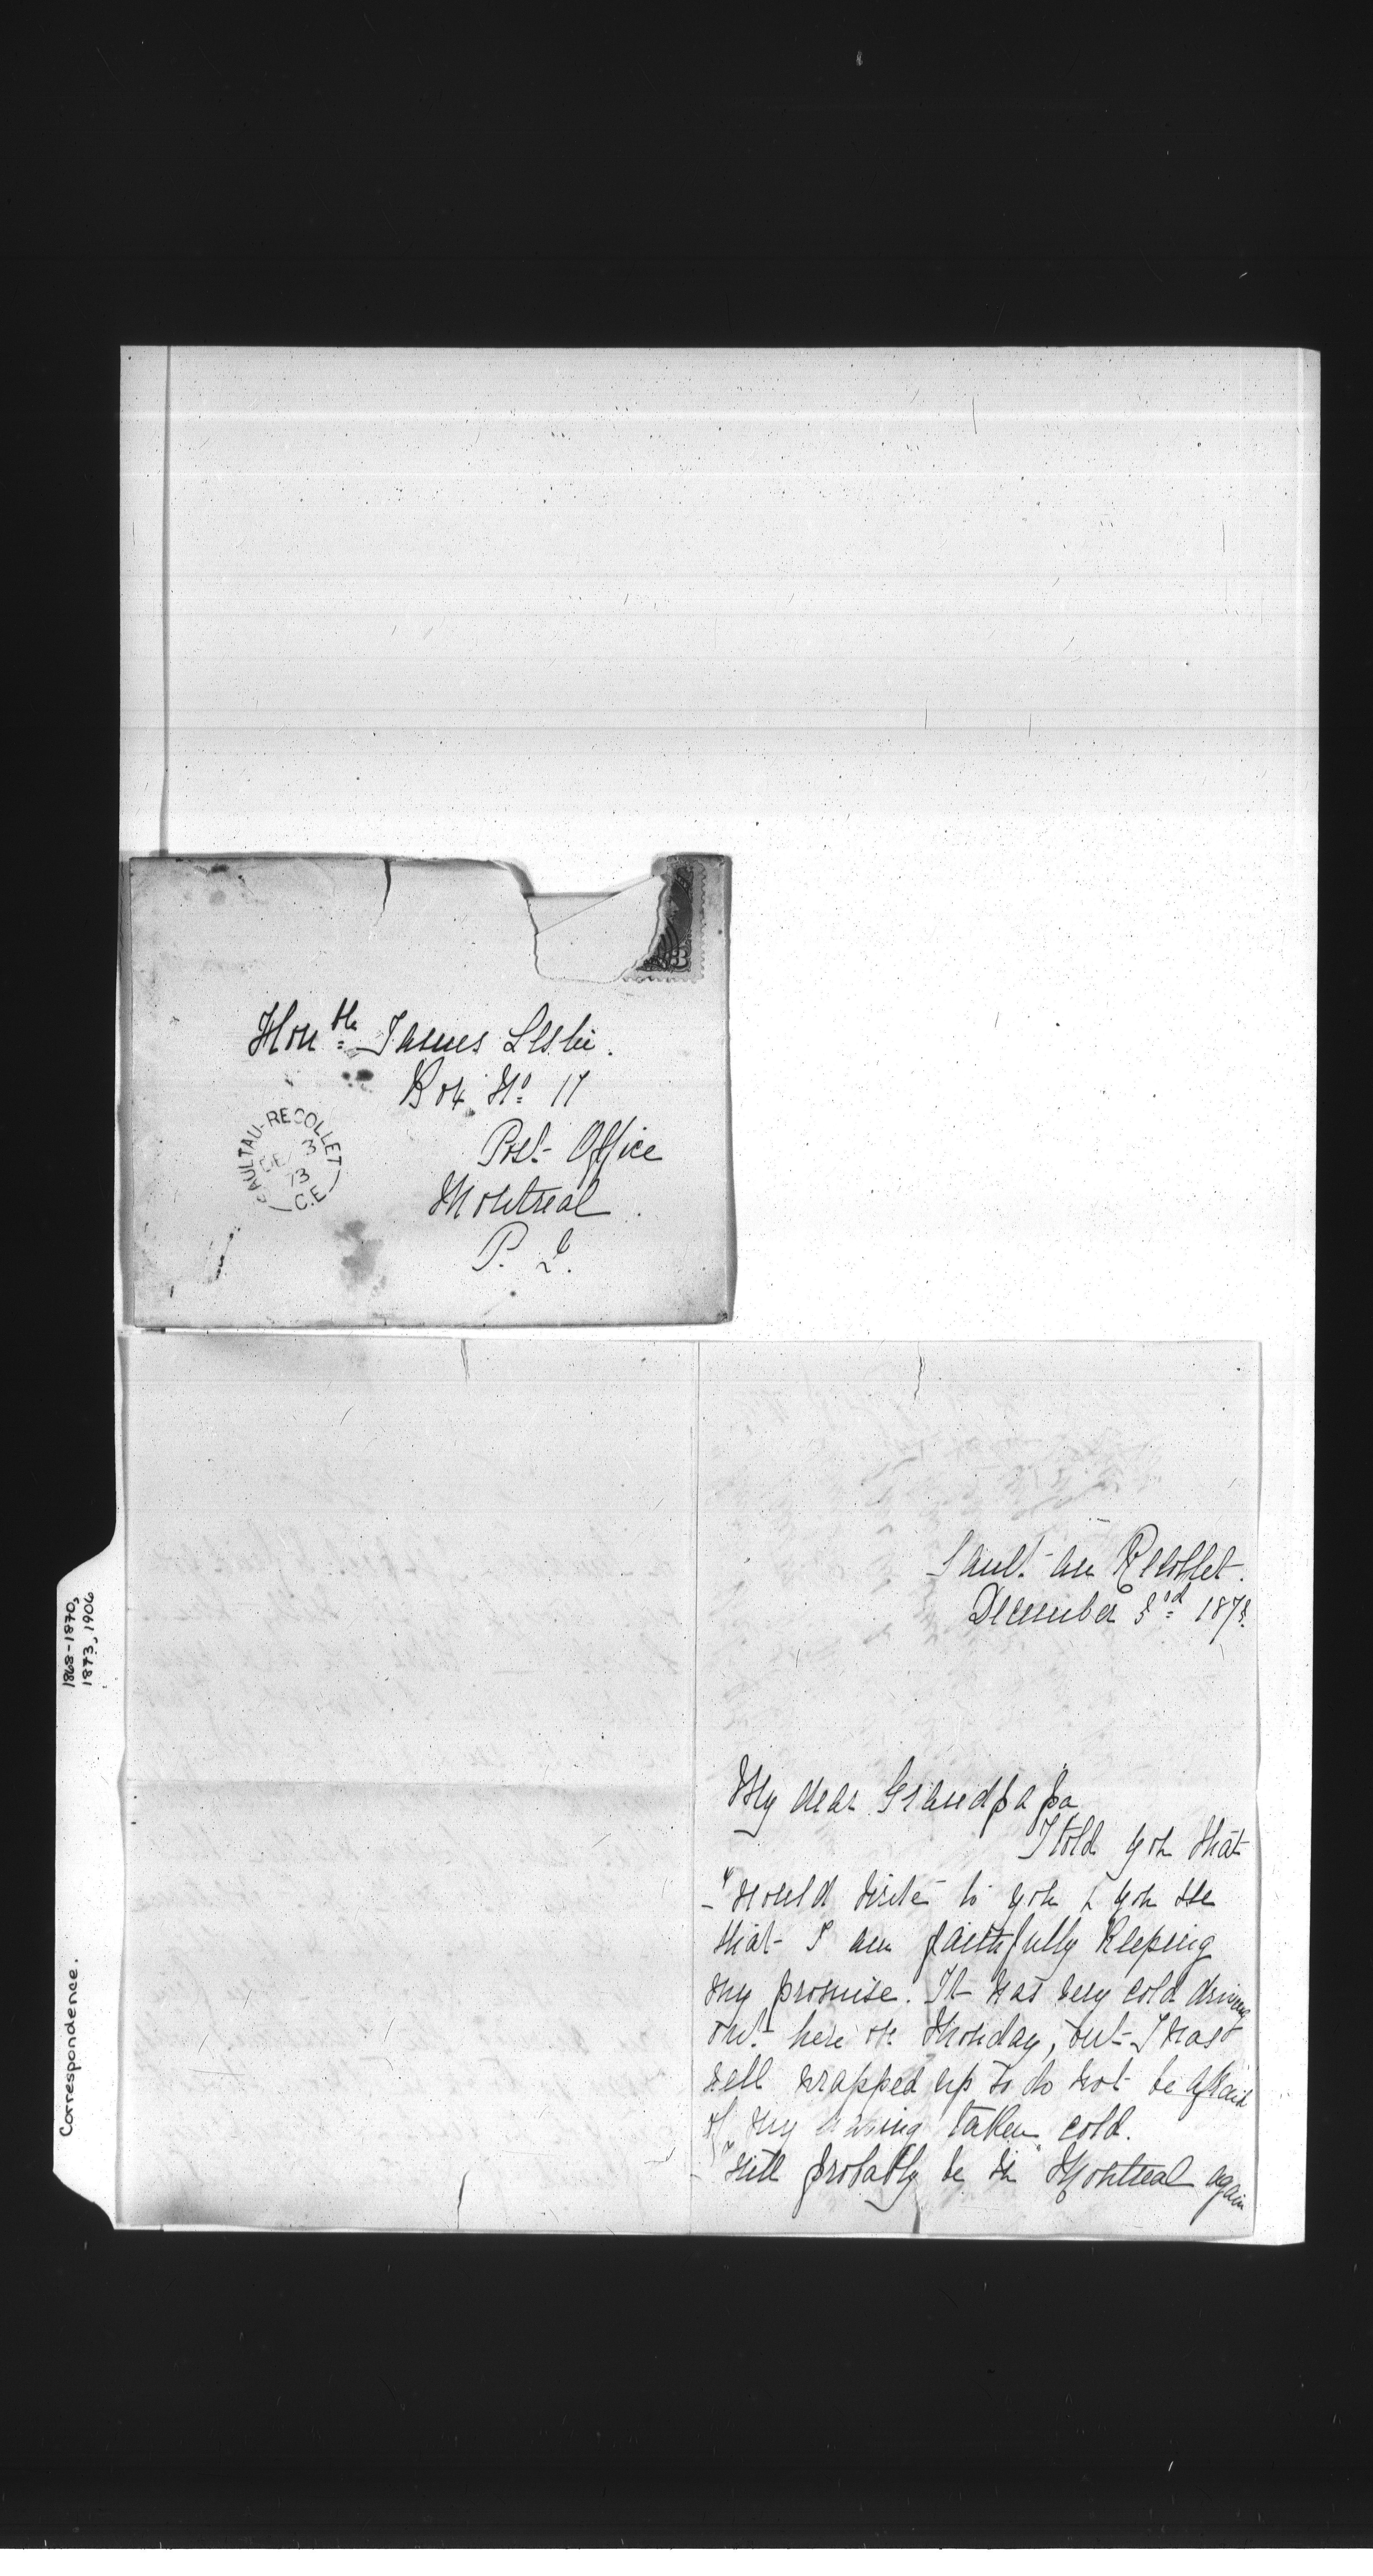 Honble James Leslie.
Box No 17
Post Office
Montreal
P. Q.
SAULT AU-RECOLLET
DE 3
73
C.E
3
1868-1870,
1873, 1906
Correspondence.
Sault-au Recollet.
December 3rd 1873.
My dear Grandpapa
I told you that
I would write to you & you see
that I am faithfully keeping
my promise. It was very cold driving
out here on Monday, but I was
well wrapped up so do not be afraid
of my having taken cold.
I will probably be in Montreal again